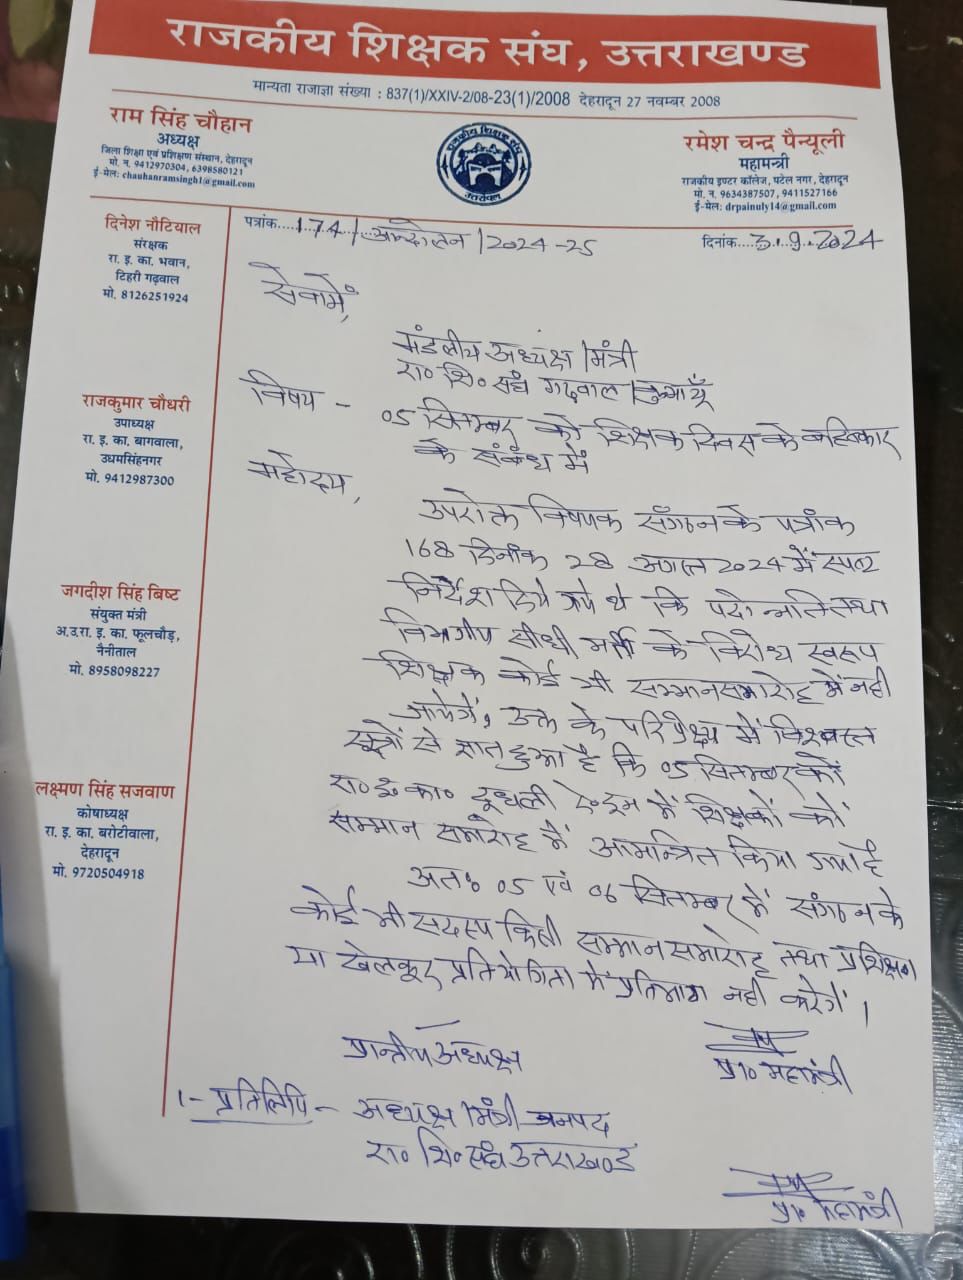 राजकीय शिक्षक संघ, उत्तराखण्ड
मान्यता राजाज्ञा संख्या : 837(1)/XXIV-2/08-23(1)/2008 देहरादून 27 नवम्बर 2008
राम सिंह चौहान
अध्यक्ष
जिला शिक्षा एवं प्रशिक्षण संस्थान, देहरादून
मो. न. 9412970304, 6398580121
ई-मेल: chauhanramsingh1@gmail.com
राजकीय शिक्षक संघ
उत्तरांचल
रमेश चन्द्र पैन्यूली
महामन्त्री
राजकीय इण्टर कॉलेज, पटेल नगर, देहरादून
मो. न. 9634387507, 9411527166
ई-मेल: drpainuly14@gmail.com
दिनेश नौटियाल
संरक्षक
रा. इ. का. भवान,
टिहरी गढ़वाल
मो. 8126251924
राजकुमार चौधरी
उपाध्यक्ष
रा. इ. का. बागवाला,
उधमसिंहनगर
मो. 9412987300
जगदीश सिंह बिष्ट
संयुक्त मंत्री
अ.उ.रा. इ. का. फूलचौड़,
नैनीताल
मो. 8958098227
लक्ष्मण सिंह सजवाण
कोषाध्यक्ष
रा. इ. का. बरोटीवाला,
देहरादून
मो. 9720504918
पत्रांक....174/आन्दोलन/2024-25
दिनांक....3.9.2024
सेवामें,
मंडलीय अध्यक्ष/मंत्री
रा० शि० संघ गढ़वाल/कुमाऊँ
विषय - 05 सितम्बर को शिक्षक दिवस के बहिष्कार
के संबंध में
महोदय,
उपरोक्त विषयक संगठन के पत्रांक
168 दिनांक 28 अगस्त 2024 में स्पष्ट
निर्देश दिये गये थे कि पदोन्नति तथा
विभागीय सीधी भर्ती के विरोध स्वरूप
शिक्षक कोई भी सम्मान समारोह में नही
जायेगें, उक्त के परिपेक्ष्य में विश्वस्त
सूत्रों से ज्ञात हुआ है कि 05 सितम्बर को
रा० इ० का० दूधली में शिक्षकों को
सम्मान समारोह में आमन्त्रित किया गया है
अतः 05 एवं 06 सितम्बर में संगठन के
कोई भी सदस्य किसी सम्मान समारोह तथा प्रशिक्षण
या खेलकूद प्रतियोगिता में प्रतिभाग नही करेगें।
प्रान्तीय अध्यक्ष
प्रा० महामंत्री
1- प्रतिलिपि - अध्यक्ष/मंत्री जनपद
रा० शि० संघ उत्तराखण्ड
प्रा० महामंत्री